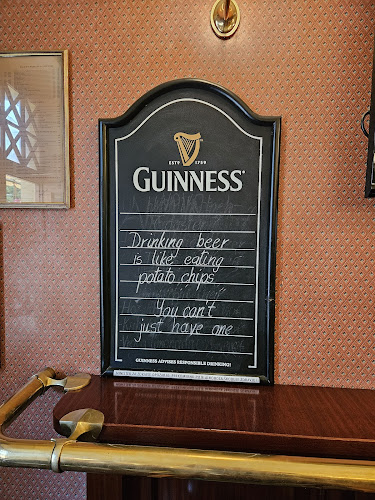 ESTD 1759
GUINNESS®
Drinking beer
is like eating
potato chips
You can't
just have one
GUINNESS ADVISES RESPONSIBLE DRINKING!